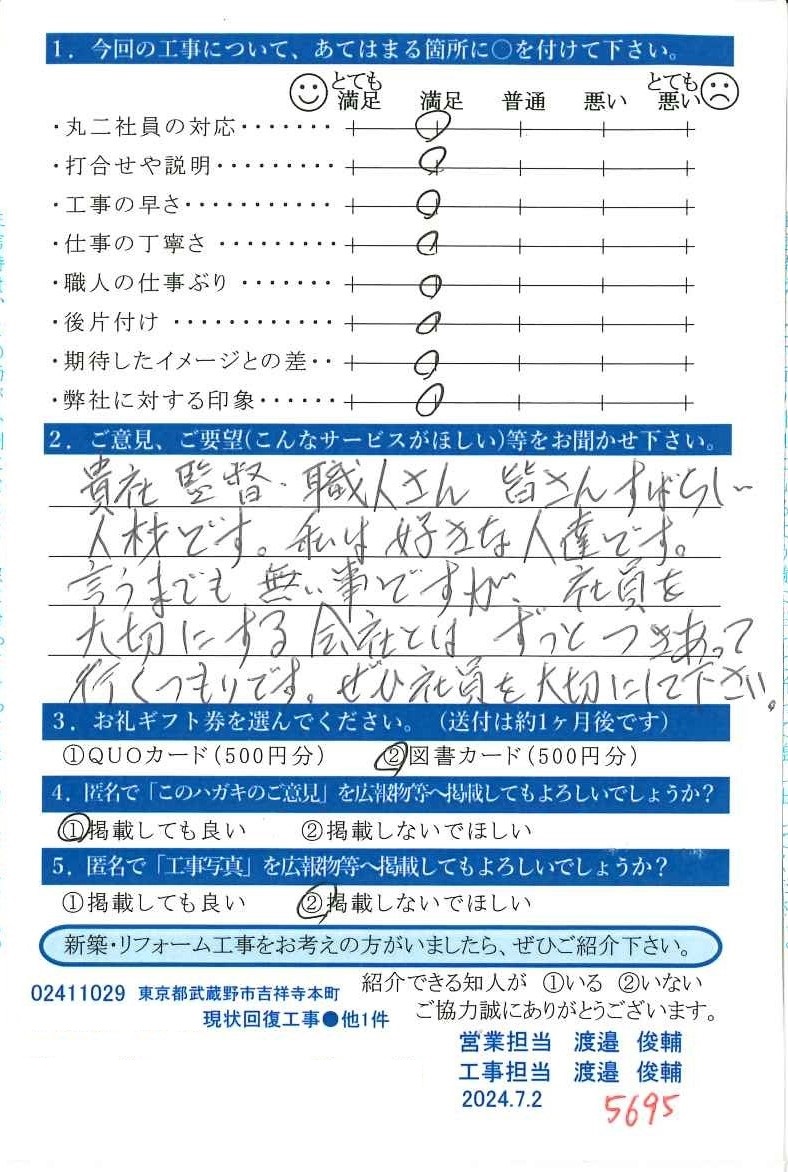 1．今回の工事について、あてはまる箇所に○を付けて下さい。
とても満足 満足 普通 悪い とても悪い
・丸二社員の対応・・・・・・・
・打合せや説明・・・・・・・・・
・工事の早さ・・・・・・・・・・・
・仕事の丁寧さ ・・・・・・・・・
・職人の仕事ぶり ・・・・・・・
・後片付け ・・・・・・・・・・・・
・期待したイメージとの差・・
・弊社に対する印象・・・・・・
2．ご意見、ご要望(こんなサービスがほしい)等をお聞かせ下さい。
監督・職人さん 皆さんすばらしい
人材です。私は好きな人達です。
言うまでも無い事ですが、社員を
大切にする会社とは ずっと つきあって
行くつもりです。ぜひ社員を大切にして下さい。
3．お礼ギフト券を選んでください。（送付は約1ヶ月後です）
①QUOカード(500円分） ②図書カード(500円分）
4．匿名で「このハガキのご意見」を広報物等へ掲載してもよろしいでしょうか？
①掲載しても良い ②掲載しないでほしい
5．匿名で「工事写真」を広報物等へ掲載してもよろしいでしょうか？
①掲載しても良い ②掲載しないでほしい
新築・リフォーム工事をお考えの方がいましたら、ぜひご紹介下さい。
紹介できる知人が ①いる ②いない
02411029 東京都武蔵野市吉祥寺本町
ご協力誠にありがとうございます。
現状回復工事●他1件
営業担当 渡邉 俊輔
工事担当 渡邉 俊輔
2024.7.2
5695